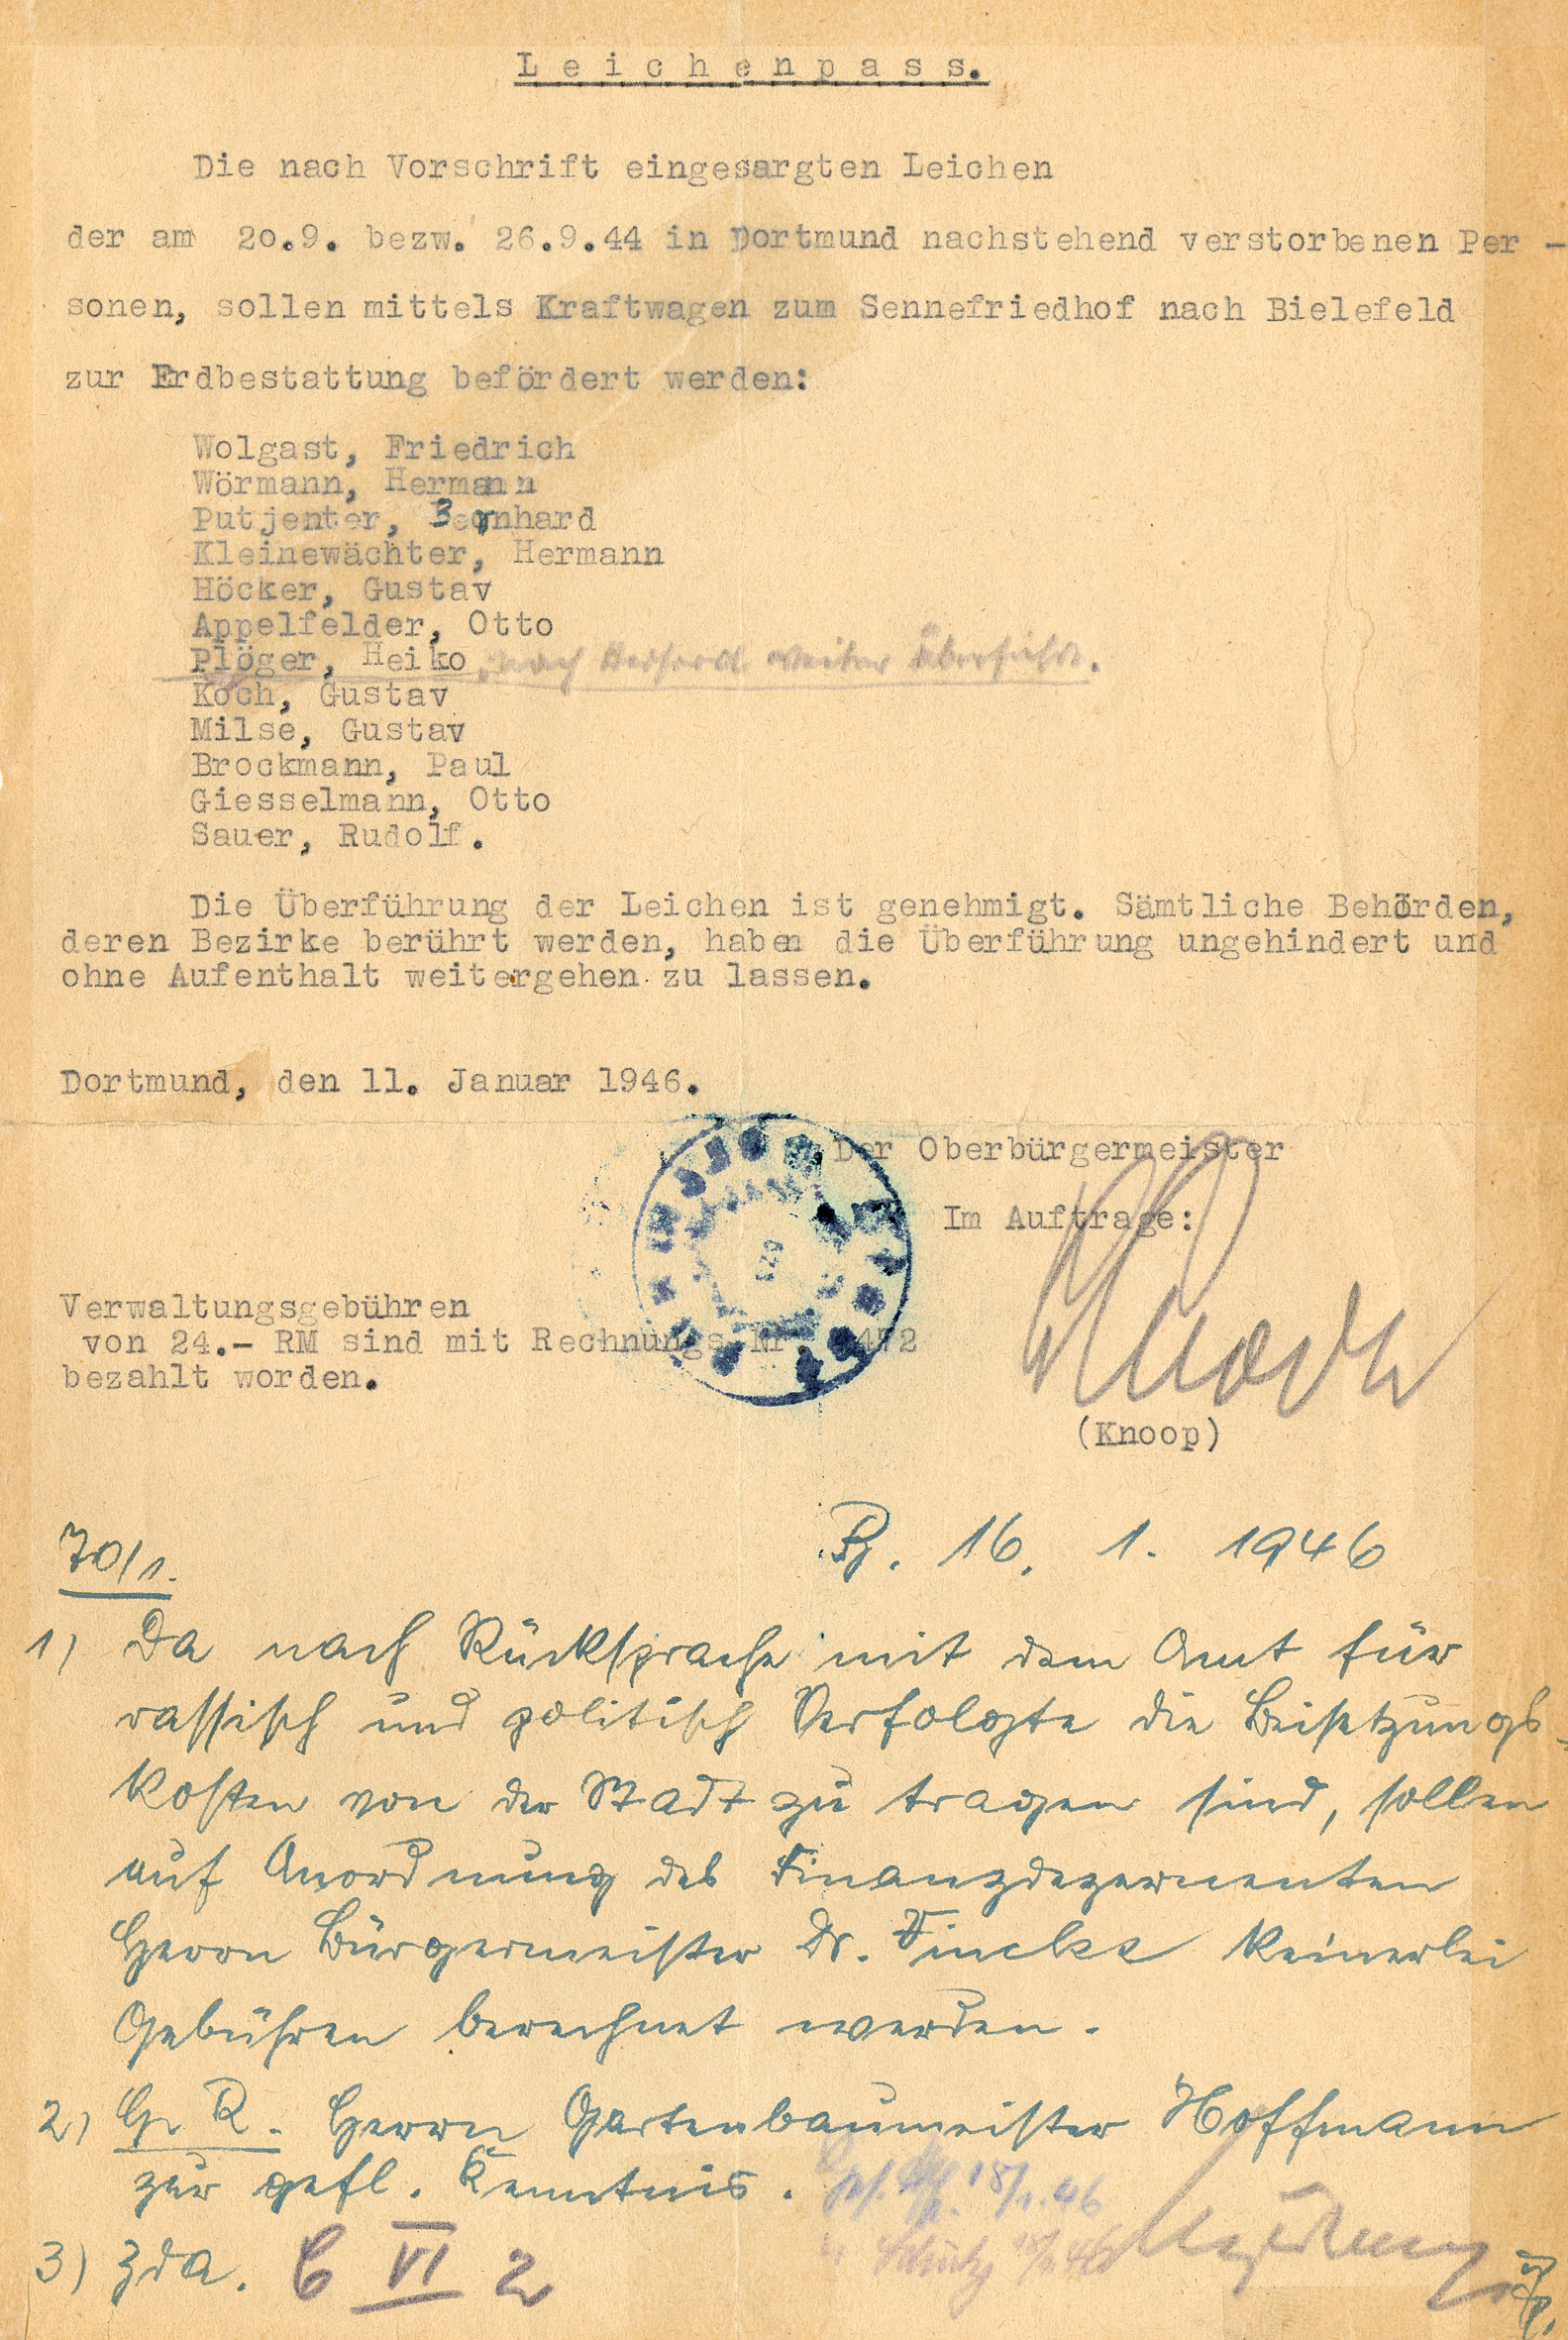 Leichenpass.
Die nach Vorschrift eingesargten Leichen
der am 20.9. bezw. 26.9.44 in Dortmund nachstehend verstorbenen Per -
sonen, sollen mittels Kraftwagen zum Sennefriedhof nach Bielefeld
zur Erdbestattung befördert werden:
Wolgast, Friedrich
Wörmann, Hermann
Putjenter, Bernhard
Kleinewächter, Hermann
Höcker, Gustav
Appelfelder, Otto
Plöger, Heiko, nach weiter überführt.
Koch, Gustav
Milse, Gustav
Brockmann, Paul
Giesselmann, Otto
Sauer, Rudolf.
Die Überführung der Leichen ist genehmigt. Sämtliche Behörden,
deren Bezirke berührt werden, haben die Überführung ungehindert und
ohne Aufenthalt weitergehen zu lassen.
Dortmund, den 11. Januar 1946.
Der Oberbürgermeister
Im Auftrage:
Verwaltungsgebühren
von 24.- RM sind mit Rechnungs Nr 472
bezahlt worden.
Knoop
(Knoop)
70/1. 16. 1. 1946
1) Da nach Rücksprache mit dem Amt für
rassisch und politisch Verfolgte die Beisetzungs-
kosten von der Stadt zu tragen sind, sollen
auf Anordnung des Finanzdezernenten
Herrn Bürgermeister Dr. Fincke keinerlei
Gebühren berechnet werden.
2) Herrn Gartenbaumeister Hoffmann
zur gefl. Kenntnis. 18/1.46
3) zdA. C VI 2